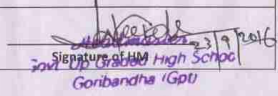 23/9/2016
Signature of HM
Govt. Up Graded High School
Goribandha (Gpt)